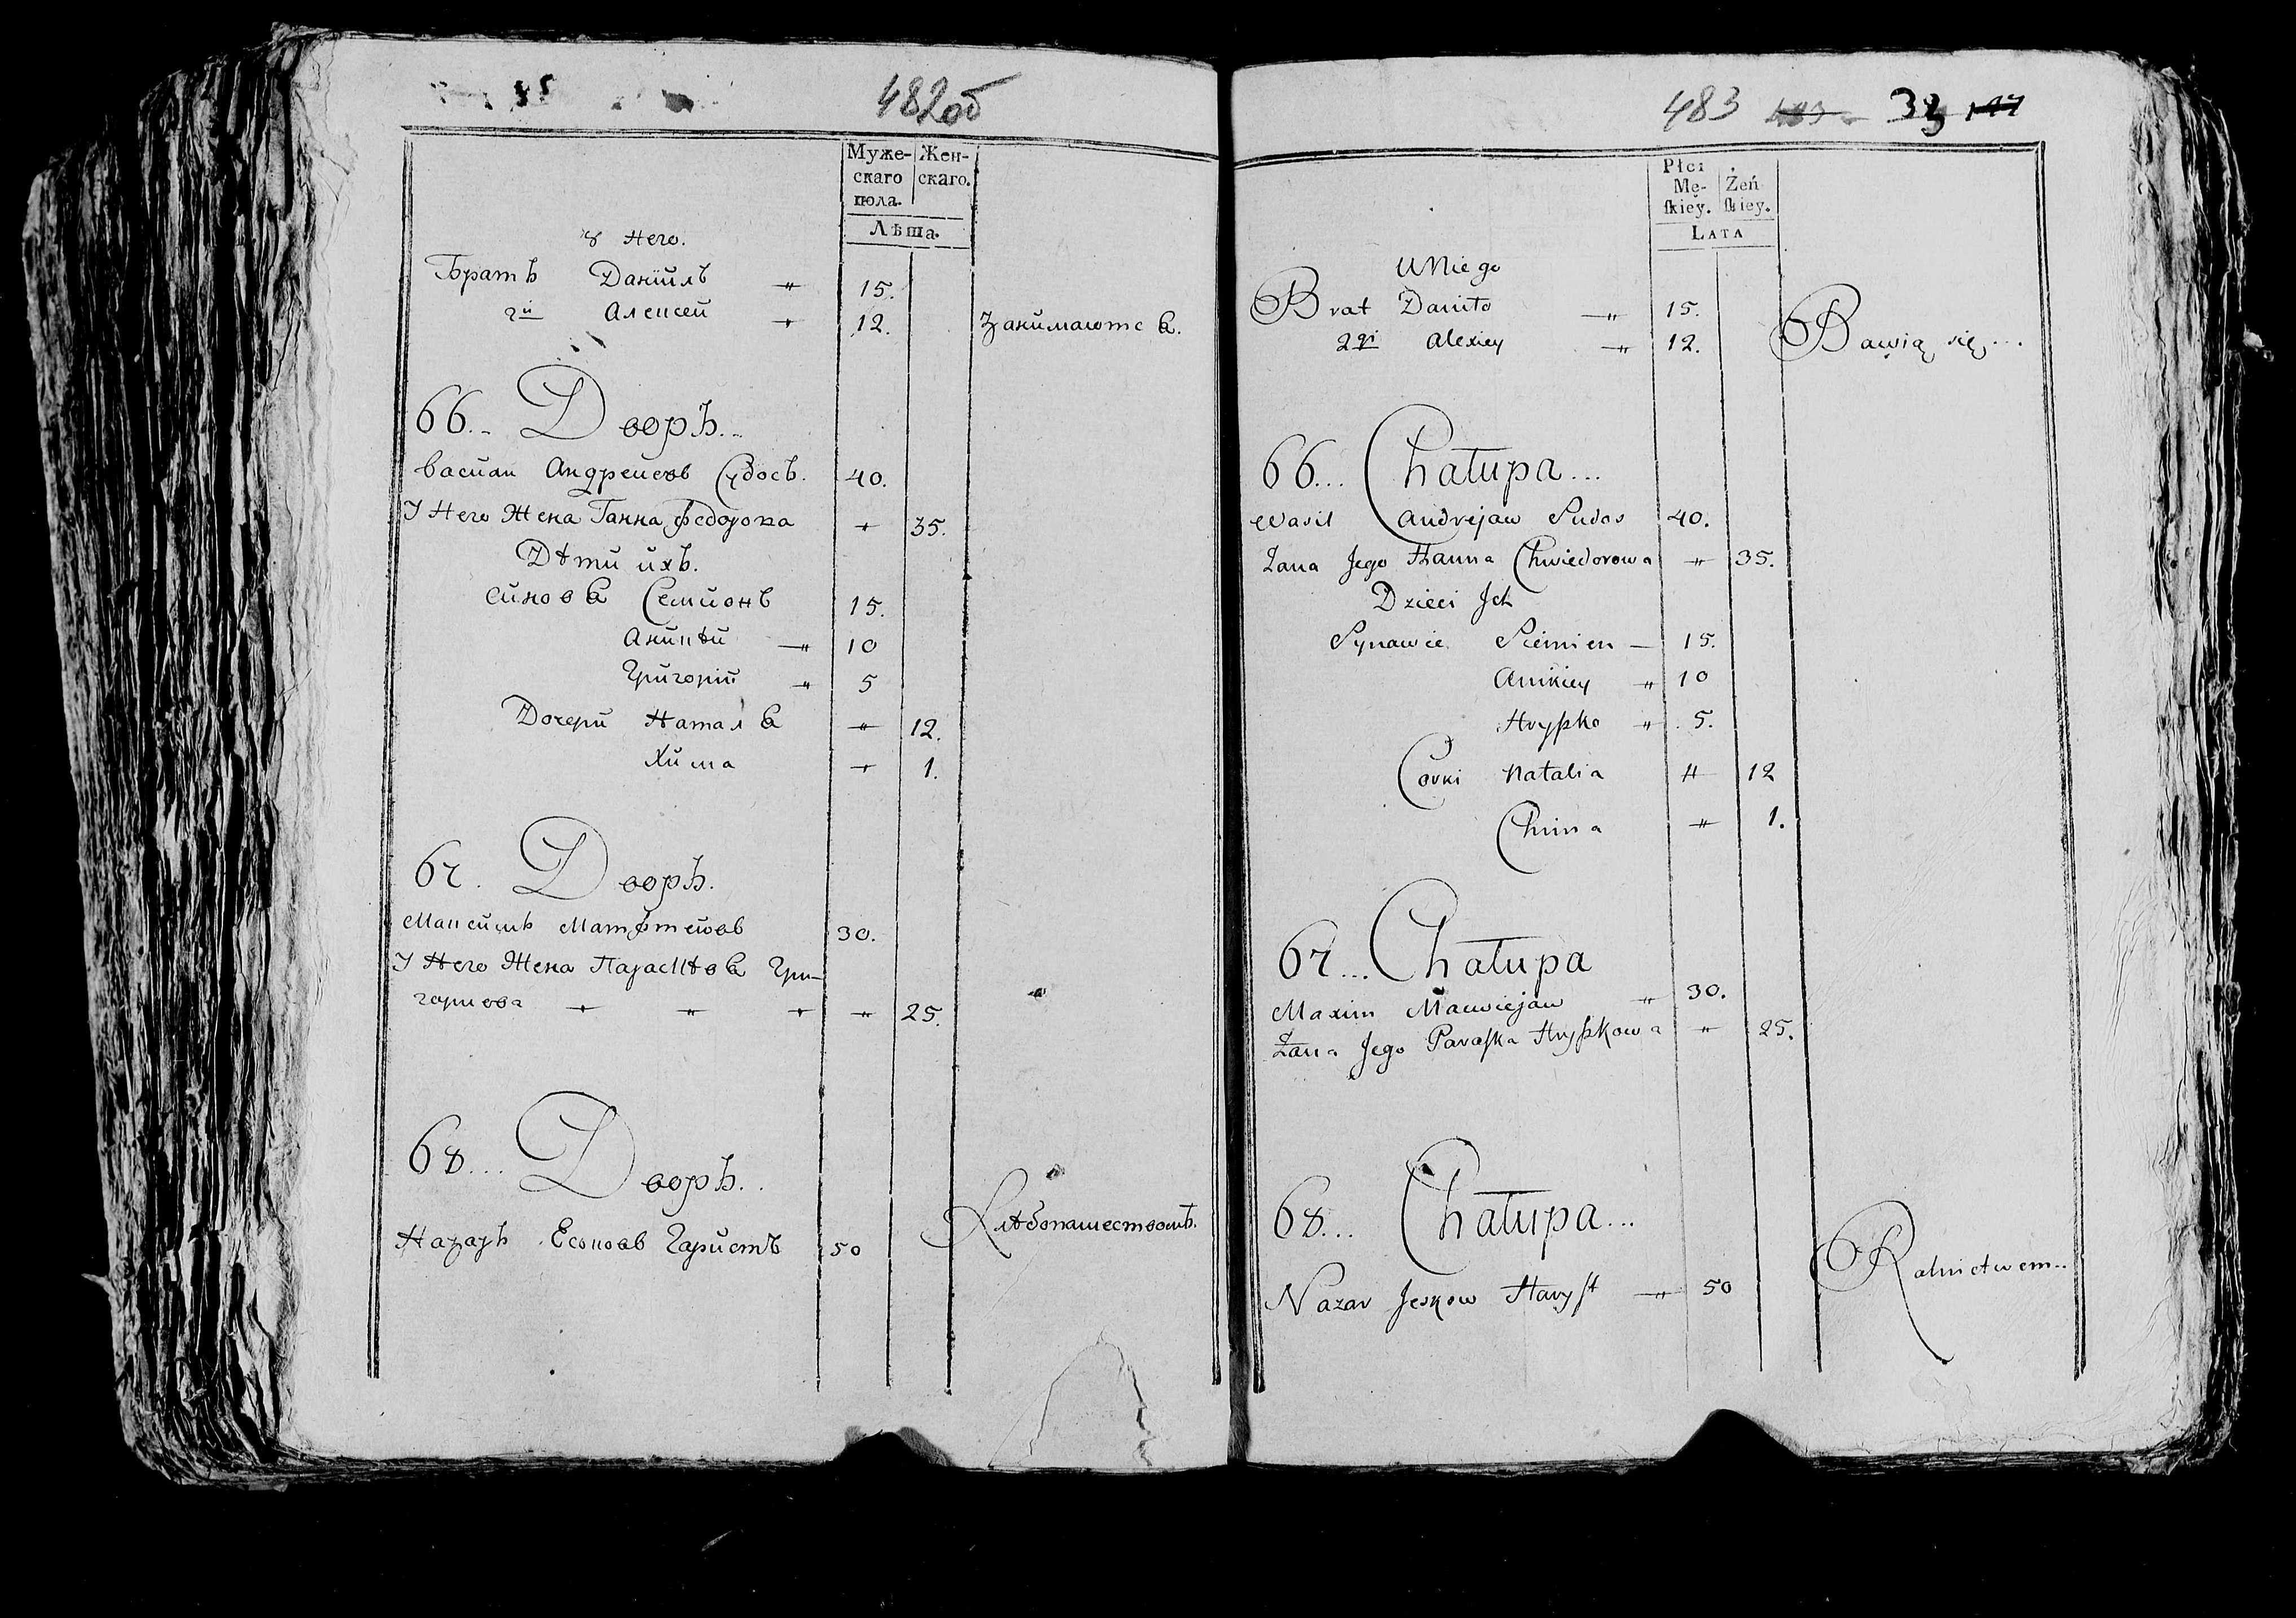 482об
Муже-
скаго
пола.
Жен-
скаго.
Лѣта.
У Него.
Братъ Данiилъ 〃 15.
2й Алексей 〃 12. Занимаются.
66.. Дворъ..
Васили Андреиевъ Судосъ. 40.
У Него Жена Ганна Федорова 〃 35.
Дѣти ихъ.
Синовя Семионъ 15.
Аникѣй 〃 10
Григорiй 〃 5
Дочери Наталя 〃 12.
Хима 〃 1.
67. Дворъ.
Максимъ Матфтеиовъ 30.
У Него Жена Парасковя Гри-
гориева 〃 〃 〃 〃 25.
68... Дворъ..
Назаръ Есковъ Гаристъ 50 Хлѣбопашествомъ.
483 33
Płci
Mę-
skiey.
Żeń
skiey.
Lata
U Niego
Brat Daniło 〃 15.
2gi Alexiey 〃 12. Bawią się...
66... Chałupa...
Wasil Andrejaw Sudos 40.
Żana Jego Hanna Chwiedorowa 〃 35.
Dzieci Jch
Synawie Siemien 15.
Anikiey 〃 10
Hryszko 〃 5.
Corki Natalia 〃 12
Chima 〃 1.
67... Chałupa
Maxim Macwiejaw 〃 30.
Żana Jego Paraska Hryszkowa 〃 25.
68... Chałupa...
Nazar Jeskow Haryst 〃 50 Rolnictwem..